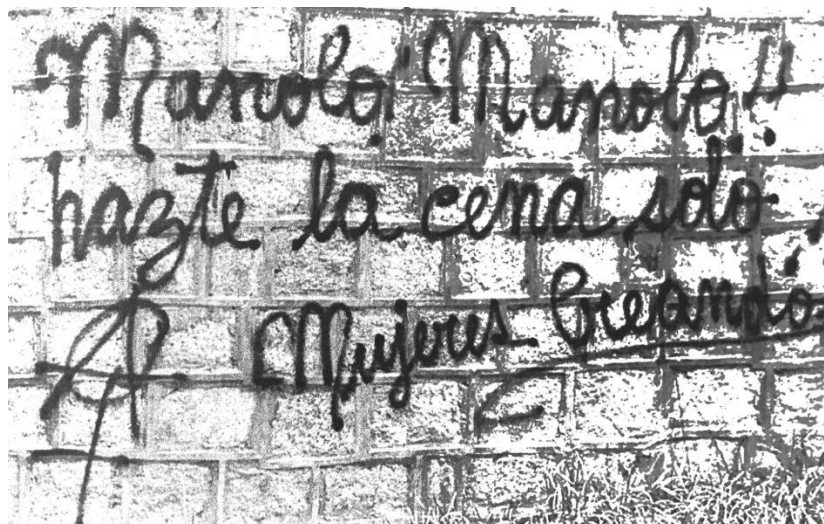 Manolo! Manolo!!
hazte la cena solo.
Mujeres Creando